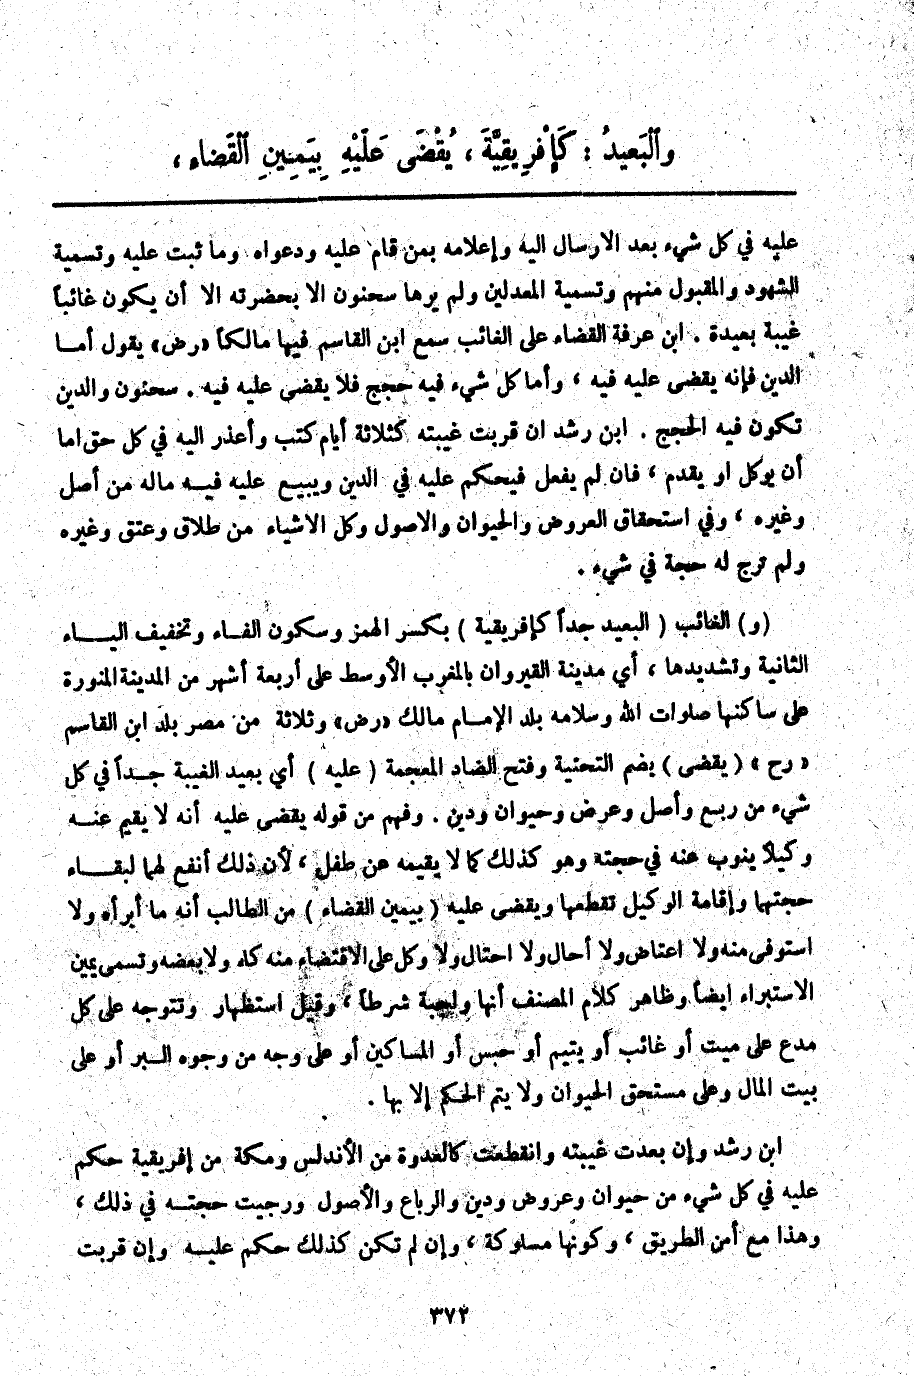 وَالْبَعِيدُ : كَإِفْرِيقِيَّةَ ، يُقْضَى عَلَيْهِ بِيَمِينِ الْقَضَاءِ ،
عليه في كل شيء بعد الارسال اليه وإعلامه بمن قام عليه ودعواه وما ثبت عليه وتسمية
الشهود والمقبول منهم وتسمية المعدلين ولم يرها سحنون الا بحضرته الا أن يكون غائباً
غيبة بعيدة . ابن عرفة القضاء على الغائب سمع ابن القاسم فيها مالكاً «رض» يقول أمــا
الدين فإنه يقضى عليه فيه ، وأما كل شيء فيه حجج فلا يقضى عليه فيه . سحنون والدين
تكون فيه الحجج . ابن رشد ان قربت غيبته كثلاثة أيام كتب وأعذر اليه في كل حق اما
أن يوكل او يقدم ، فان لم يفعل فيحكم عليه في الدين ويبيـع عليه فيــه ماله من أصل
وغيره ، وفي استحقاق العروض والحيوان والاصول وكل الاشياء من طلاق وعتق وغيره
ولم ترج له حجة في شيء .
(و) الغائب ( البعيد جداً كإفريقية ) بكسر الهمز وسكون الفـاء وتخفيف اليـــاء
الثانية وتشديدها ، أي مدينة القيروان بالمغرب الأوسط على أربعة أشهر من المدينة المنورة
على ساكنها صلوات الله وسلامه بلد الإمـام مالك «رض» وثلاثة من مصر بلد ابن القاسم
« رح » ( يقضى ) بضم التحتية وفتح الضاد المعجمة ( عليه ) أي بعيد الغيبة جـداً في كل
شيء من ربع وأصل وعرض وحيوان ودين . وفهم من قوله يقضى عليه أنه لا يقيم عنــه
وكيلاً ينوب عنه في حجته وهو كذلك كما لا يقيمه عن طفل ، لأن ذلك أنفع لهما لبقـــاء
حجتهما وإقامة الوكيل تقطعها ويقضى عليه ( بيمين القضاء ) من الطالب أنه ما أبرأه ولا
استوفى منه ولا اعتاض ولا أحال ولا احتال ولا وكل على الاقتضاء منه كله ولا بعضه وتسمى يمين
الاستبراء ايضاً وظاهر كلام المصنف أنها واجبة شرطاً ، وقيل استظهار وتتوجه على كل
مدع على ميت أو غائب أو يتيم أو حبس أو المساكين أو على وجه من وجوه الـبر أو على
بيت المال وعلى مستحق الحيوان ولا يتم الحكم إلا بها .
ابن رشد وإن بعدت غيبته وانقطعت كالعدوة من الأندلس ومكة من إفريقية حكم
عليه في كل شيء من حيوان وعروض ودين والرباع والأصول ورجيت حجتــه في ذلك ،
وهذا مع أمن الطريق ، وكونها مسلوكة ، وإن لم تكن كذلك حكم عليــه وإن قربت
٣٧٢